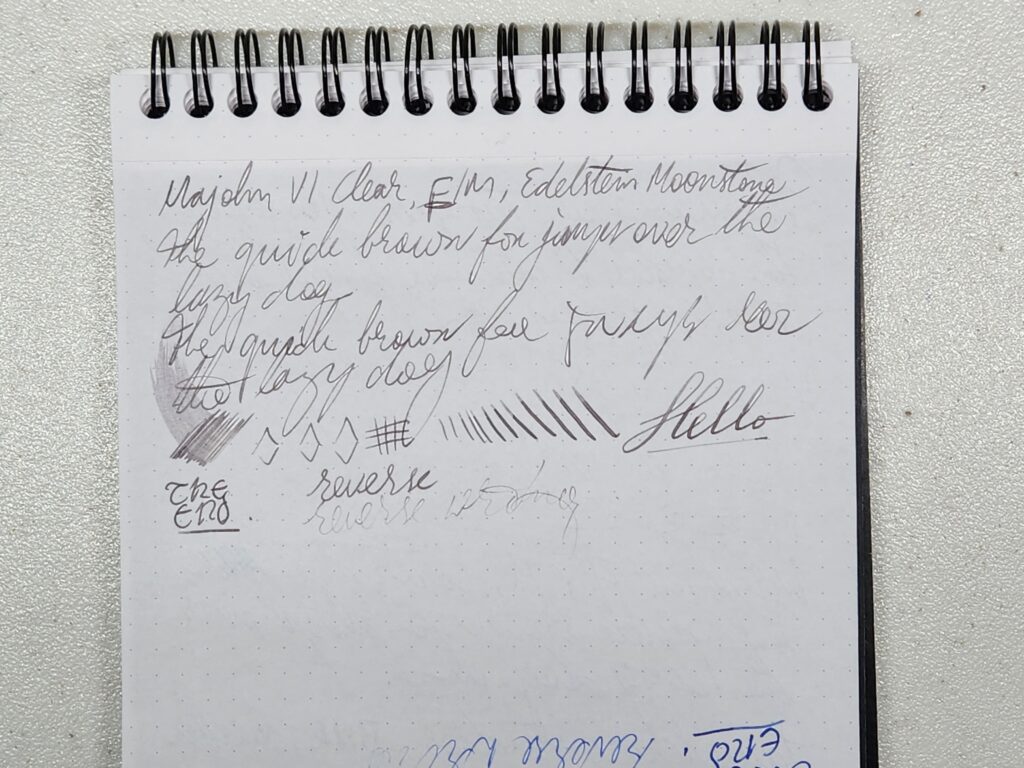 Majohn V1 Clear, F/M, Edelstein Moonstone
the quick brown fox jumps over the
lazy dog
the quick brown fox jumps over
the lazy dog
Hello
THE
END.
reverse
reverse writing
reverse
END.